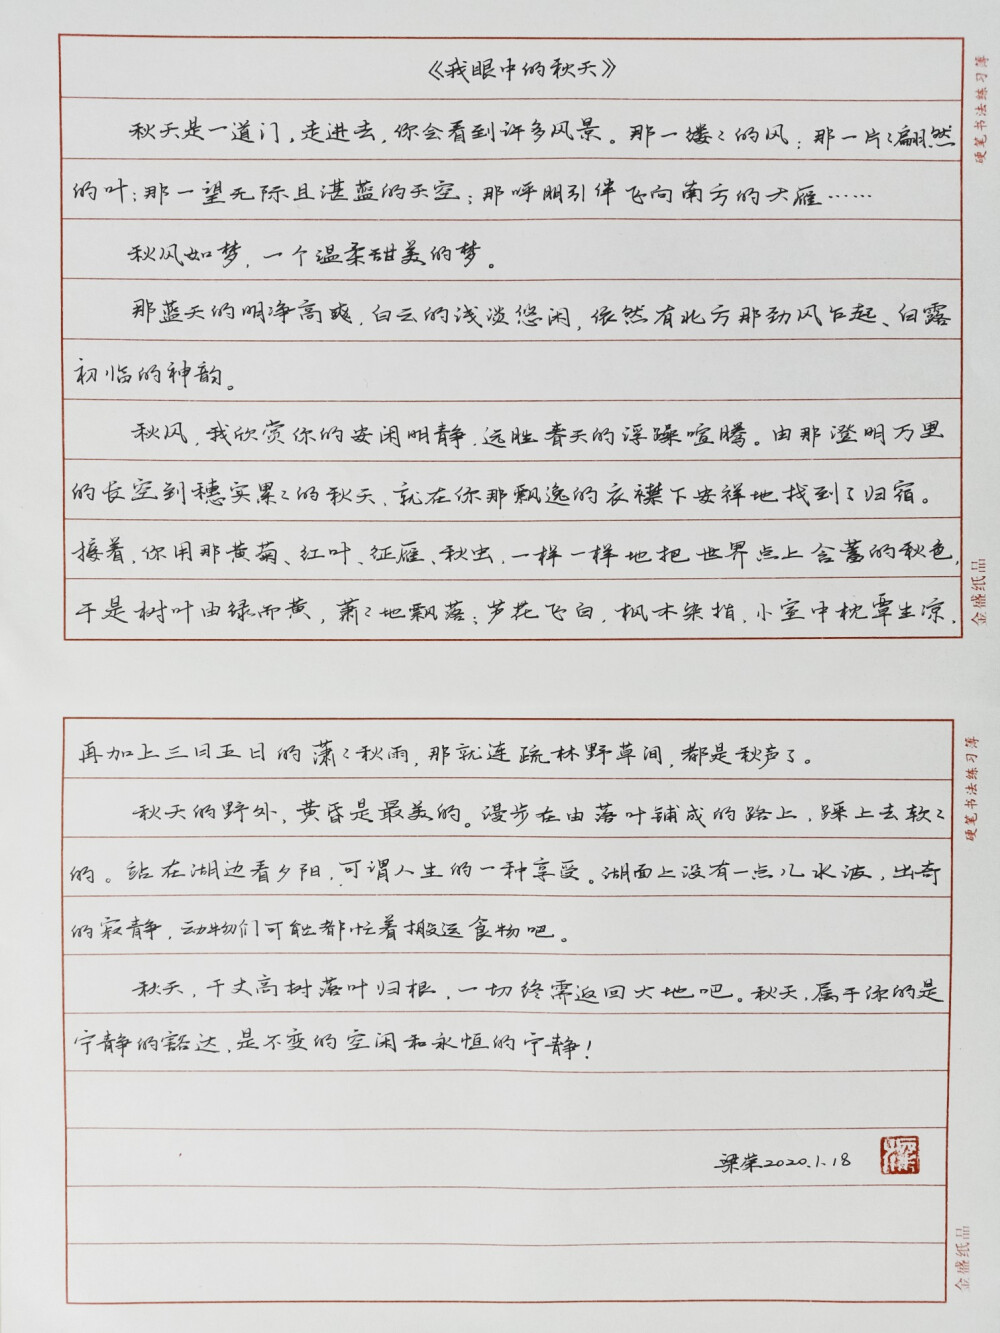 《我眼中的秋天》
秋天是一道门,走进去,你会看到许多风景。那一缕々的风;那一片々翩然
的叶;那一望无际且湛蓝的天空;那呼朋引伴飞向南方的大雁……
秋风如梦,一个温柔甜美的梦。
那蓝天的明净高爽,白云的浅淡悠闲,依然有北方那劲风乍起、白露
初临的神韵。
秋风,我欣赏你的安闲明静,远胜春天的浮躁喧腾。由那澄明万里
的长空到穗实累々的秋天,就在你那飘逸的衣襟下安祥地找到了归宿。
接着,你用那黄菊、红叶、征雁、秋虫,一样一样地把世界点上含蓄的秋色,
于是树叶由绿而黄,萧々地飘落;芦花飞白,枫木染指,小室中枕簟生凉,
再加上三日五日的潇々秋雨,那就连疏林野草间,都是秋声了。
秋天的野外,黄昏是最美的。漫步在由落叶铺成的路上,踩上去软々
的。站在湖边看夕阳,可谓人生的一种享受。湖面上没有一点儿水波,出奇
的寂静,动物们可能都忙着搬运食物吧。
秋天,千丈高树落叶归根,一切终需返回大地吧。秋天,属于你的是
宁静的豁达,是不变的空闲和永恒的宁静!
梁荣2020.1.18
硬笔书法练习簿
金盛纸品
硬笔书法练习簿
金盛纸品